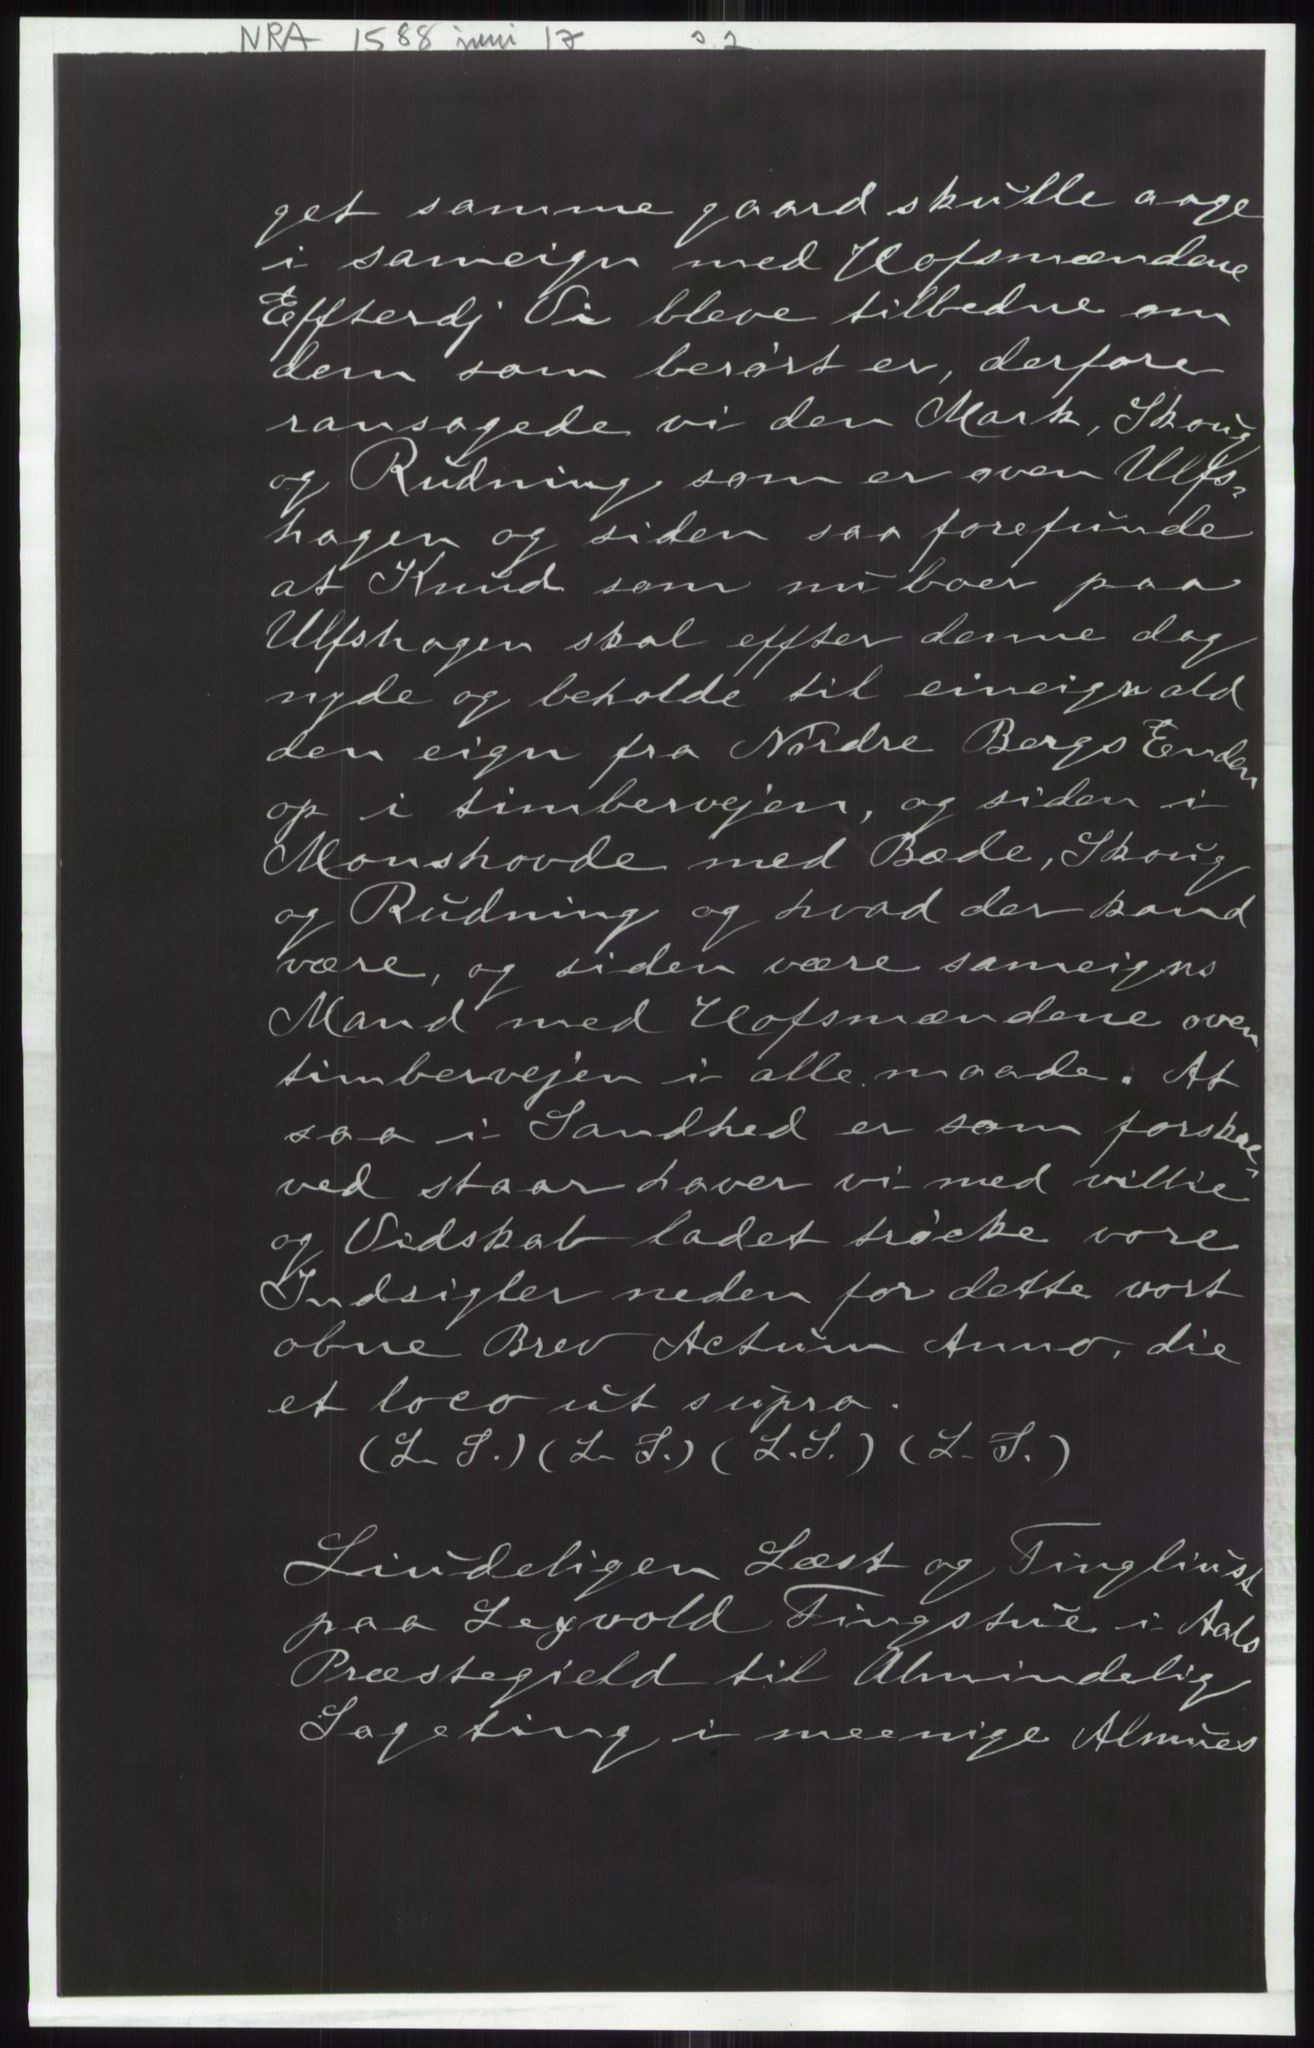 NRA 1588 juni 17 s. 2
get samme gaard skulle aage
i sameign med Hofsmændene
Effterdj Vi bleve tilbedne om
dem som berørt er, derfore
ransagede vi den Mark, Skoug
og Rudning som er oven Ulfs-
hagen og siden saa forefunde
at Knud som nu boer paa
Ulfshagen skal effter denne dag
nyde og beholde til eineign ald
den eign fra Nordre Bergs Enden
op i timbervejen, og siden i
Monshovde med Bæde, Skoug
og Rudning og hvad der kand
være, og siden være sameigns
Mand med Hofsmændene oven
timbervejen i alle maade. At
saa i Sandhed er som forskre-
ved staar haver vi med villie
og Vidskab ladet trøcke vore
Indsigler neden for dette vort
obne Brev Actum Anno, die
et loco ut supra.
(L. S.) (L. S.) (L. S.) (L. S.)
Liudeligen Læst og Tingliust
paa Lexvold Tingstue i Aals
Præstegield til Almindelig
Sageting i meenige Almues